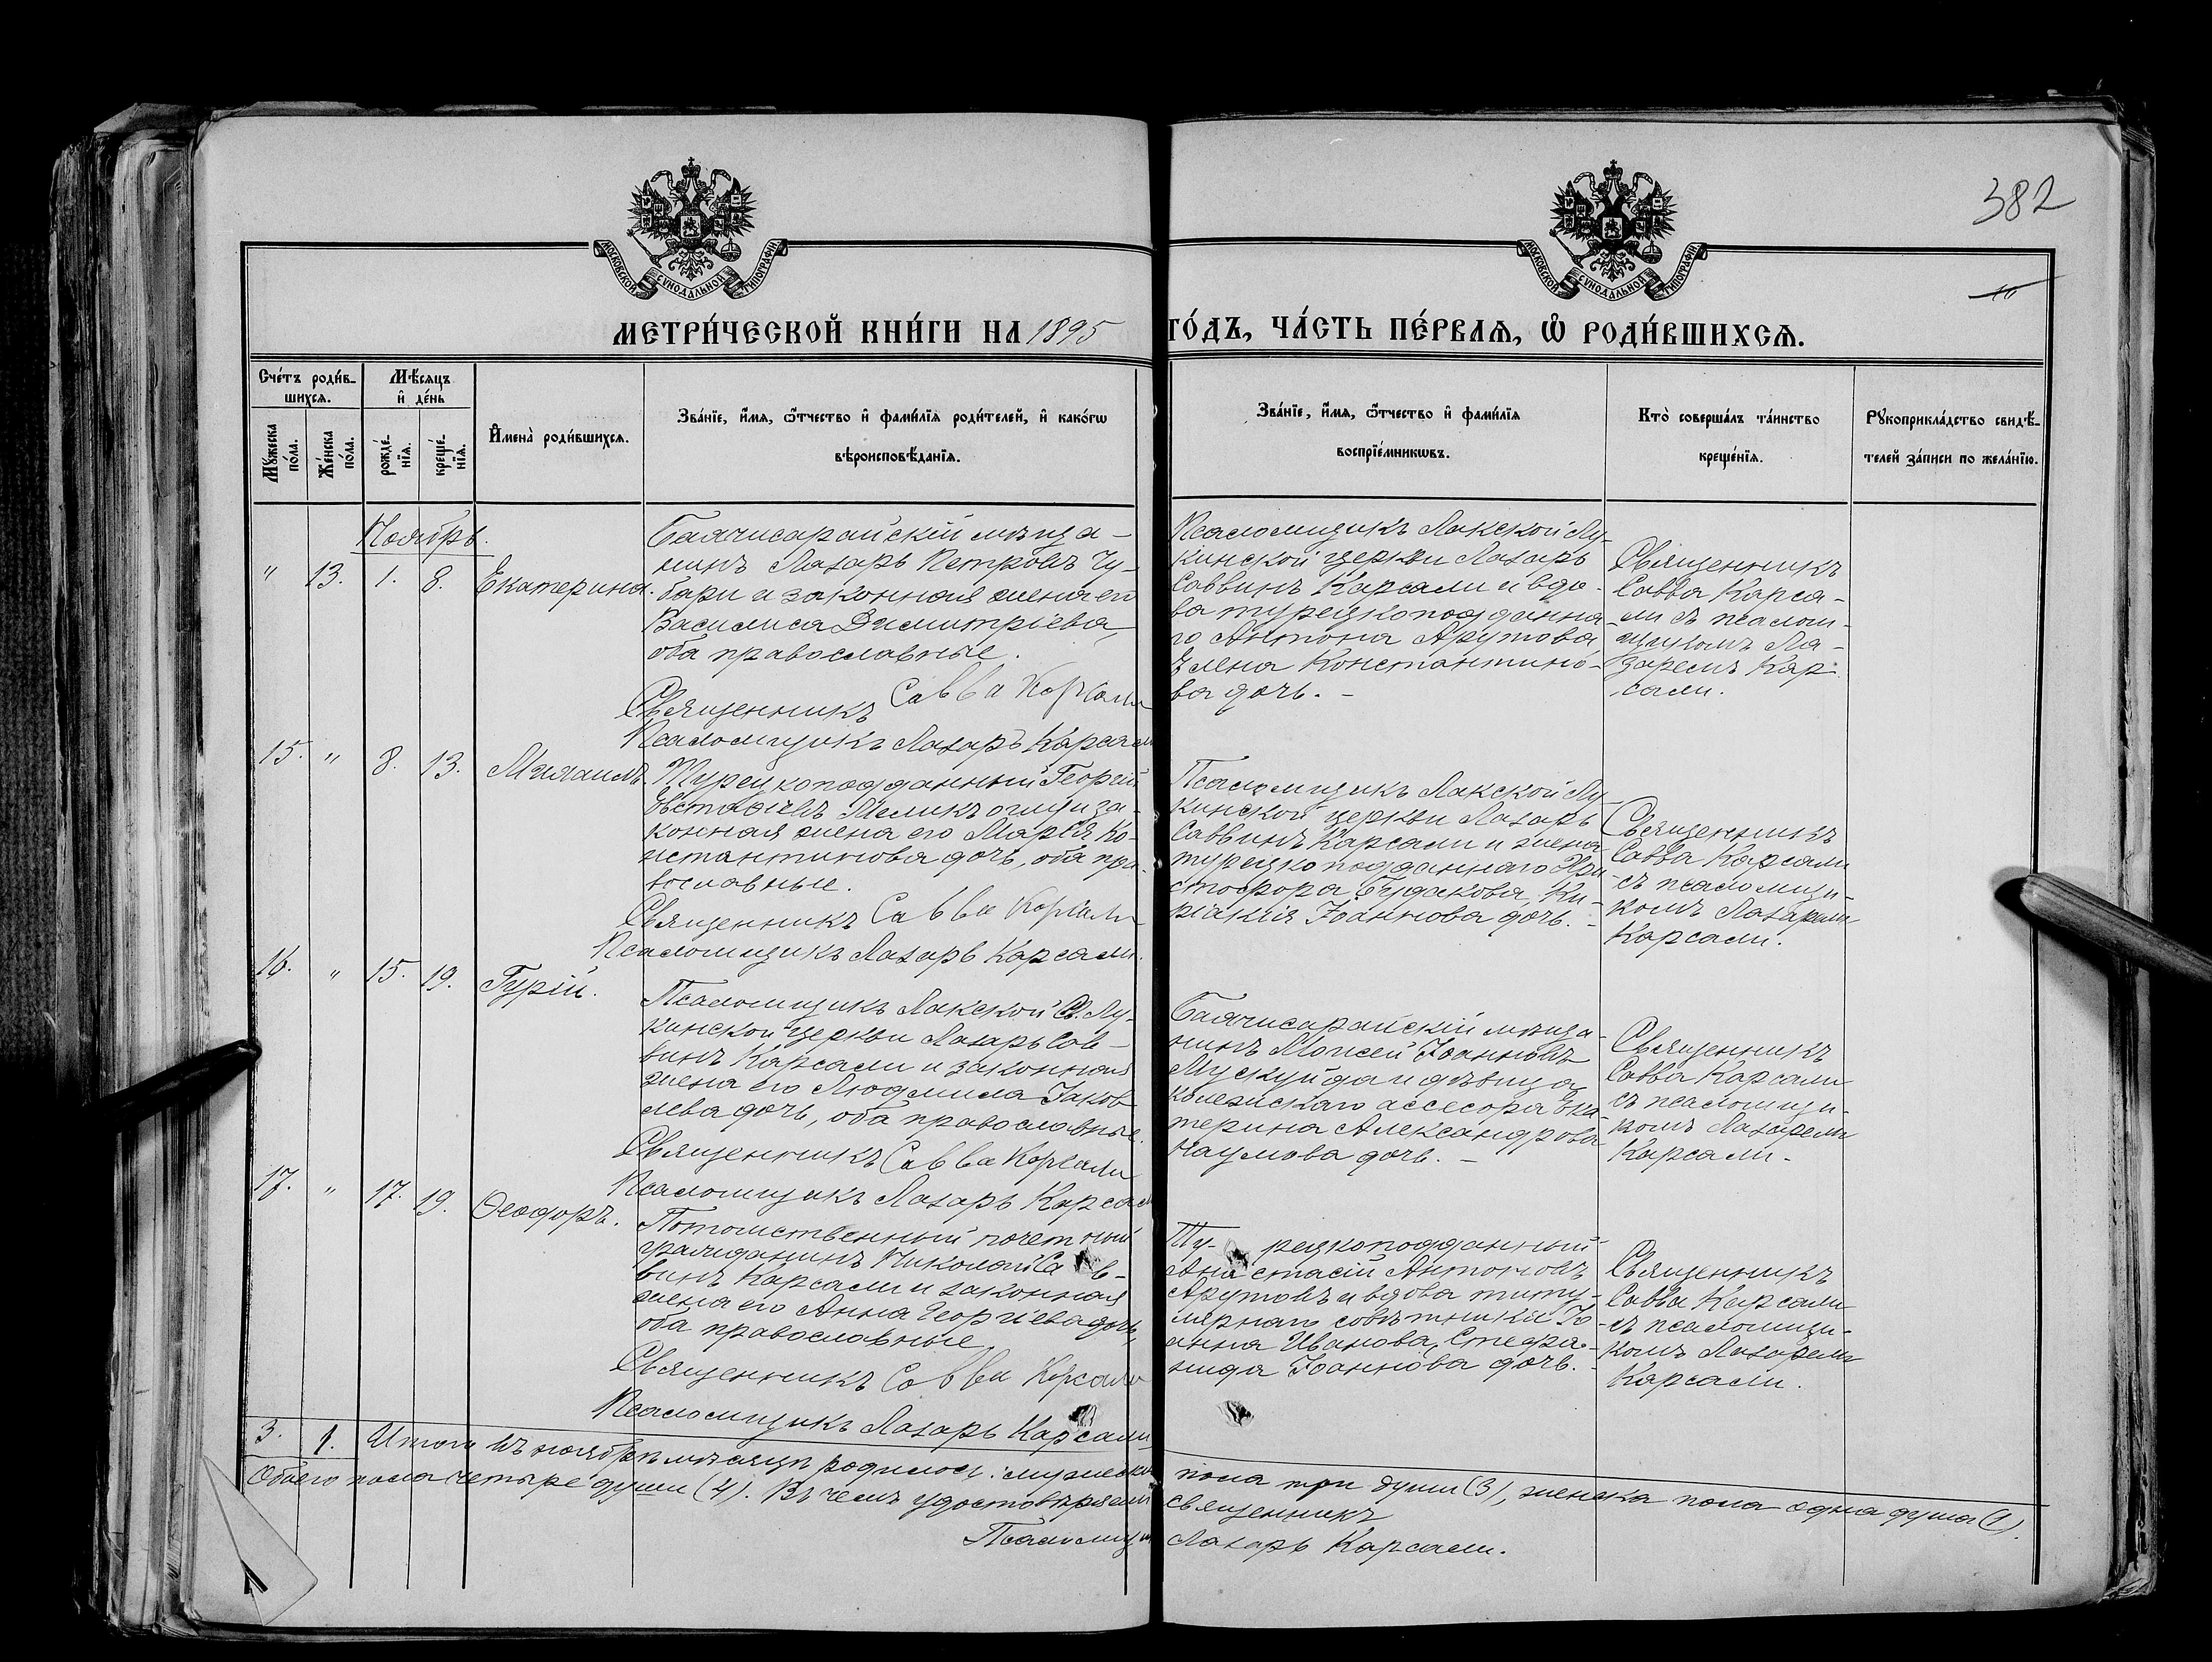 382
10
МОСКОВСКОЙ СѴНОДАЛЬНОЙ ТИПОГРАФІИ
МОСКОВСКОЙ СѴНОДАЛЬНОЙ ТИПОГРАФІИ
МЕТРИ́ЧЕСКОЙ КНИ́ГИ НА 1895 ГО́ДЪ, ЧА́СТЬ ПЕ́РВАѦ, Ѡ҆ РОДИ́ВШИХСѦ.
Сче́тъ роди́в-
шихсѧ.
Мꙋ́жеска
по́ла.
Же́нска
по́ла.
Мѣ́сѧцъ
и҆ де́нь
рожде́-
нїѧ.
креще́-
нїѧ.
И҆мена̀ роди́вшихсѧ.
Зва́нїе, и҆́мѧ, ѻ҆́тчество и҆ фами́лїѧ роди́телей, и҆ како́гѡ
вѣроисповѣ́данїѧ.
Зва́нїе, и҆́мѧ, ѻ҆́тчество и҆ фами́лїѧ
воспрїе́мникѡвъ.
Кто̀ соверша́лъ та́инство
креще́нїѧ.
Рꙋкоприкла́дство свидѣ́-
телей за́писи по жела́нїю.
Ноябрь.
" 13. 1. 8. Екатерина.
Бахчисарайскій мѣща-
нинъ Лазарь Петровъ Чу-
бари и законная жена его
Василиса Димитріева,
оба православные.
Священникъ Савва Карсали
Псаломщикъ Лазарь Карсали
Псаломщикъ Лакской Лу-
кинской церкви Лазарь
Саввинъ Карсали и вдо-
ва турецкоподданна-
го Антона Арутова
Елена Константино-
ва дочь. –
Священникъ
Савва Карса-
ли съ псалом-
щикомъ Ла-
заремъ Кар-
сали.
15. " 8. 13. Михаилъ.
Турецкоподданный Георгій
Евстафіевъ Мелихъ оглу и за-
конная жена его Марія Ко-
нстантинова дочь, оба пра-
вославные.
Священникъ Савва Карсали
Псаломщикъ Лазарь Карсали.
Псаломщикъ Лакской Лу-
кинской церкви Лазарь
Саввинъ Карсали и жена
турецкоподданнаго Хри-
стофора Будакова, Ки-
ріакія Іоаннова дочь. –
Священникъ
Савва Карсали
съ псаломщи-
комъ Лазаремъ
Карсали.
16. " 15. 19. Гурій.
Псаломщикъ Лакской Св. Лу-
кинской церкви Лазарь Сав-
винъ Карсали и законная
жена его Людмила Іаков-
лева дочь, оба православные.
Священникъ Савва Карсали
Псаломщикъ Лазарь Карсали
Бахчисарайскій мѣща-
нинъ Моисей Іоанновъ
Мускуйда и дѣвица
Колежскаго ассесора Ека-
терина Александрова
Наумова дочь. –
Священникъ
Савва Карсали
съ псаломщи-
комъ Лазаремъ
Карсали.
17. " 17. 19. Ѳеодоръ.
Потомственный почетный
гражданинъ Николай Сав-
винъ Карсали и законная
жена его Анна Георгіева дочь,
оба православные
Священникъ Савва Карсали
Псаломщикъ Лазарь Карсали
Ту- рецкоподданный
Анастасій Антоновъ
Арутовъ и вдова титу-
лярнаго совѣтника Іо-
анна Иванова, Стефа-
нида Іоаннова дочь.
Священникъ
Савва Карсали
съ псаломщи-
комъ Лазаремъ
Карсали.
3. 1. Итого въ ноябрѣ мѣсяцѣ родилось: мужеска пола три души (3), женска пола одна душа (1).
Обоего пола четыре души (4). Въ чемъ удостовѣряемъ священникъ
Псаломщикъ Лазарь Карсали.